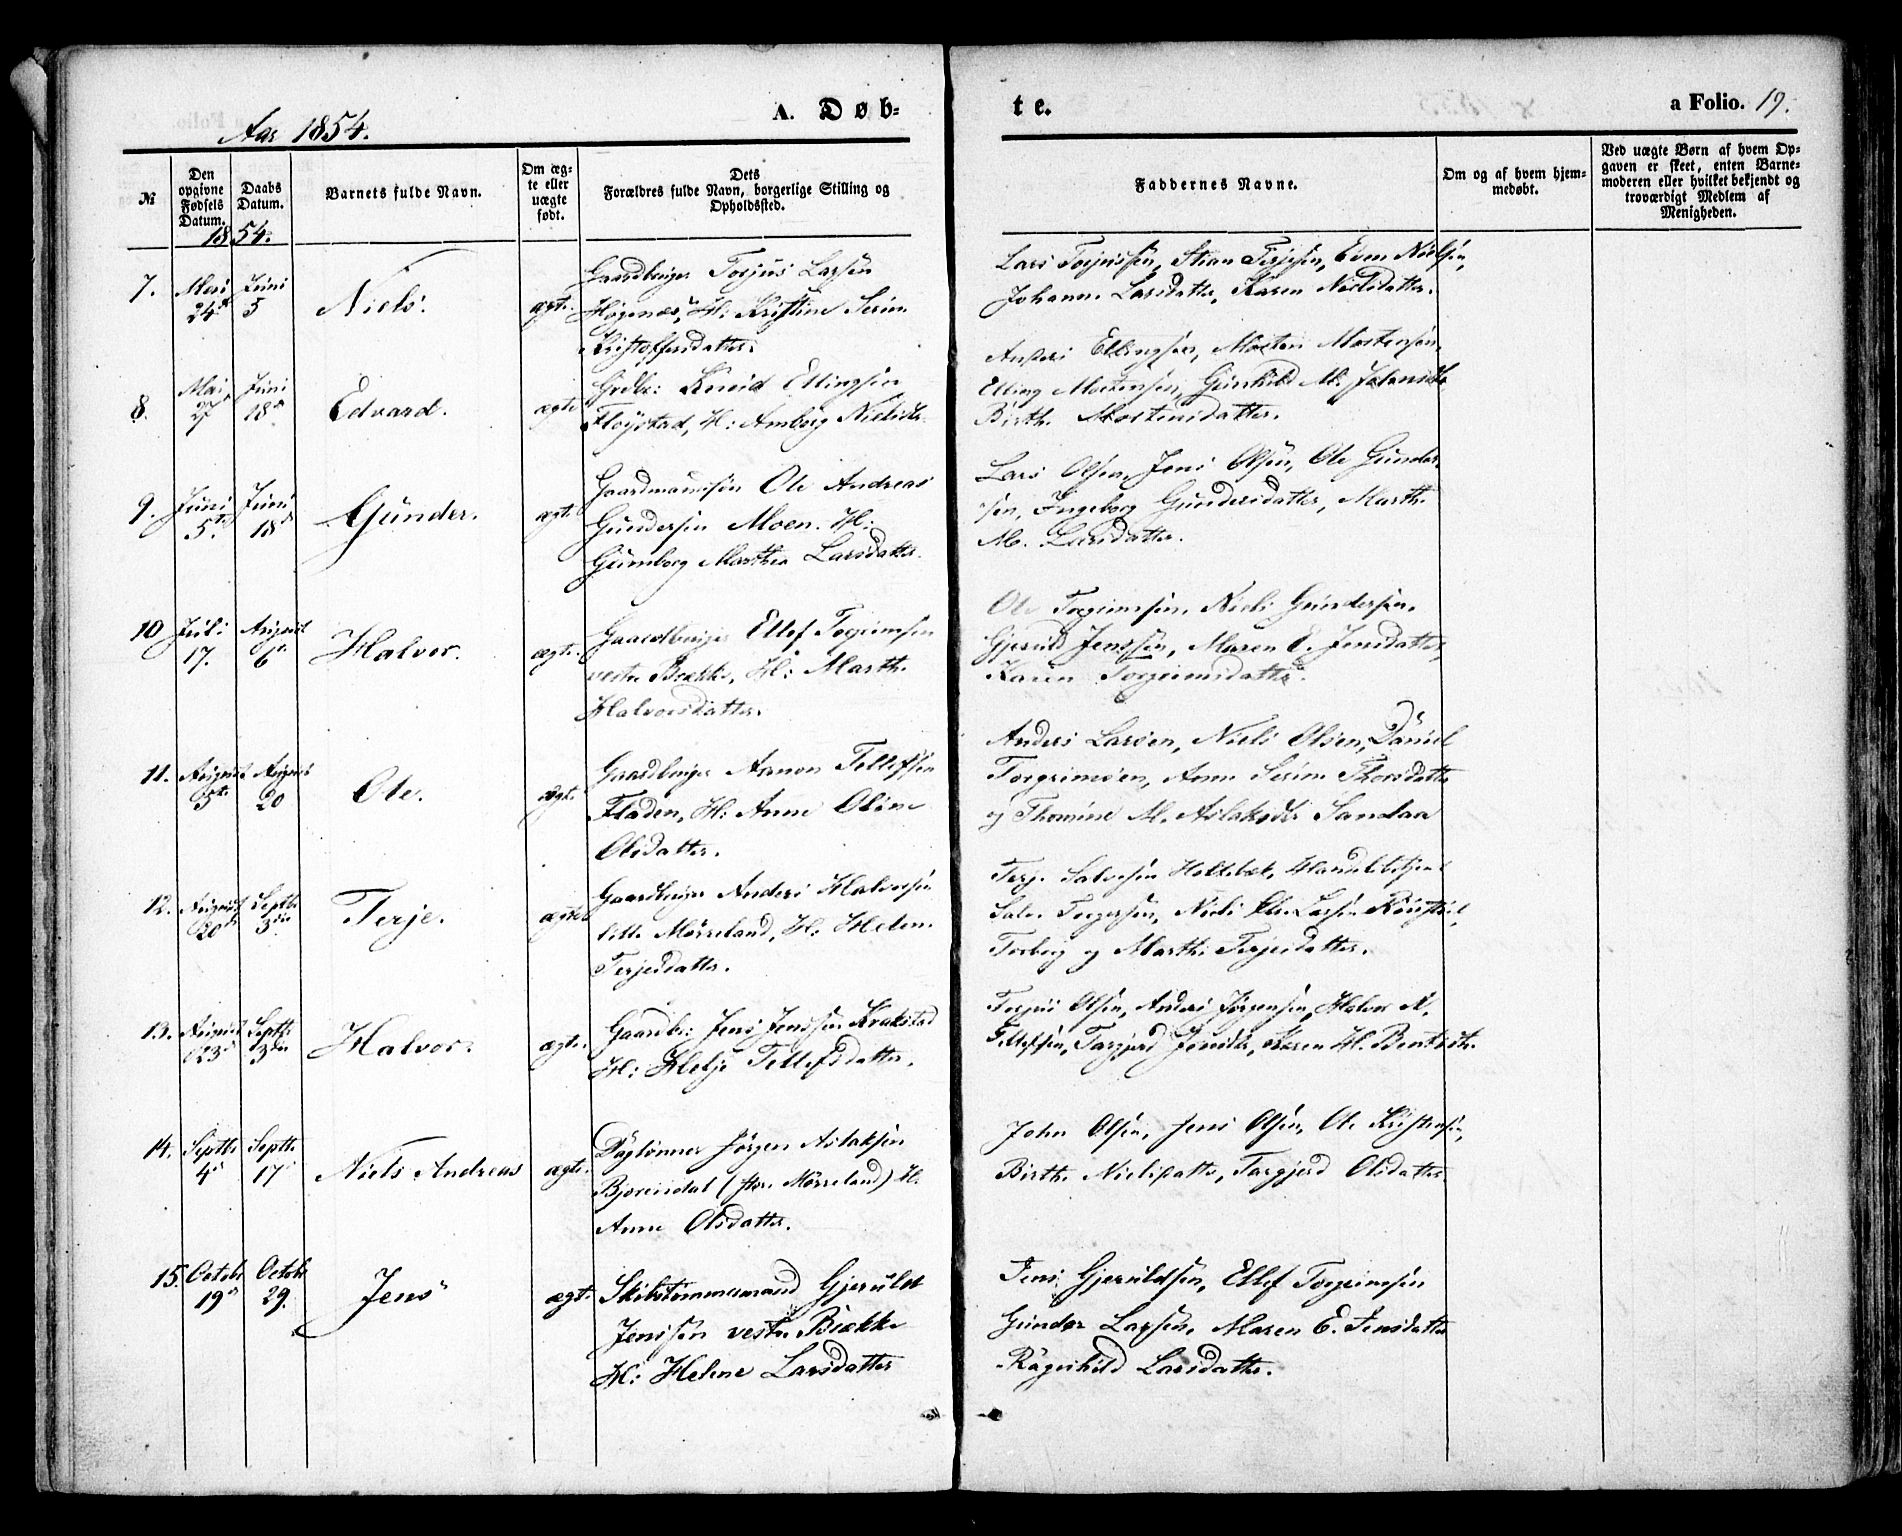 Aar 1854.
A. Døb-
te.
a Folio. 19.
№
Den opgivne Fødsels Datum.
Daabs Datum.
Barnets fulde Navn.
Om ægte eller uægte født.
Dets Forældres fulde Navn, borgerlige Stilling og Opholdssted.
Faddernes Navne.
Om og af hvem hjemmedøbt.
Ved uægte Børn af hvem Opgaven er skeet, enten Barnemoderen eller hvilket bekjendt og troværdigt Medlem af Menigheden.
1854.
7. Mai 24de Juni 5 Niels. ægte.
Gaardbruger Torjus Larsen
Høgenæs, H: Kristine Serine
Kristoffersdatter.
Lars Torjussen, Stian Terjesen, Even Nielsen,
Johanne Larsdatter, Karen Nielsdatter.
8. Mai 27 Juni 18de Edvard. ægte
Grdbr: Knud Ellingsen
Fløystad, H: Amborg Nielsdtr.
Anders Ellingsen, Morten Mortensen,
Elling Mortensen, Gunhild M. Johnsdtr
Birthe Mortensdatter.
9. Juni 5te Juni 18de Gunder. ægte
Gaardmandssøn Ole Andreas
Gundersen Moen. H:
Gumborg Marthea Larsdatter.
Lars Olsen, Jens Olsen, Ole Gunder-
sen, Ingeborg Gundersdatter, Marthe
M. Larsdatter.
10 Juli 17. August 6te Halvor. ægte.
Gaardbruger Ellef Torgrimsen
vestre Bække, H: Marthe
Halvorsdatter.
Ole Torgrimsen, Niels Gundersen,
Gjeruld Jenssen, Maren E. Jensdatter,
Karen Torgrimsdatter.
11. August 5te August 20 Ole. ægte.
Gaardbruger Aanon Tellefsen
Fladen, H: Anne Oline
Olsdatter.
Anders Larsen, Niels Olsen, Daniel
Torgrimsen, Anne Serine Thorsdatter
og Thomine M. Aslaksdtr Sandaa
12. August 20de Septbr 3die Terje. ægte
Gaardbruger Anders Halvorsen
lille Mørreland, H: Helene
Terjesdatter.
Terje Salvesen Holtebæk, Handelsbetjent
Salve Torgersen, Niels Larsen
Torborg og Marthe Terjesdatter.
13. August 23de Septbr 3die Halvor. ægte.
Gaardbr: Jens Jenssen Krakstad
H: Helje Tellefsdatter.
Torjus Olsen, Anders Jørgensen, Halvor N.
Tellefsen, Targjerd Jensdtr, Karen H. Bentsdtr.
14. Septbr 4de Septbr 17de Niels Andreas ægte.
Daglønner Jørgen Aslaksen
Bjorendal (store Mørreland) H.
Anne Olsdatter.
John Olsen, Jens Olsen, Ole Kristensen,
Birthe Nielsdatter, Targjerd Olsdatter.
15. Octobr 19de Octobr 29. Jens ægte.
Skibstømmermand Gjeruld
Jenssen vestre Bække
H: Helene Larsdatter
Jens Gjeruldsen, Ellef Torgrimsen
Gunder Larsen, Maren E. Jensdatter
Ragnhild Larsdatter.